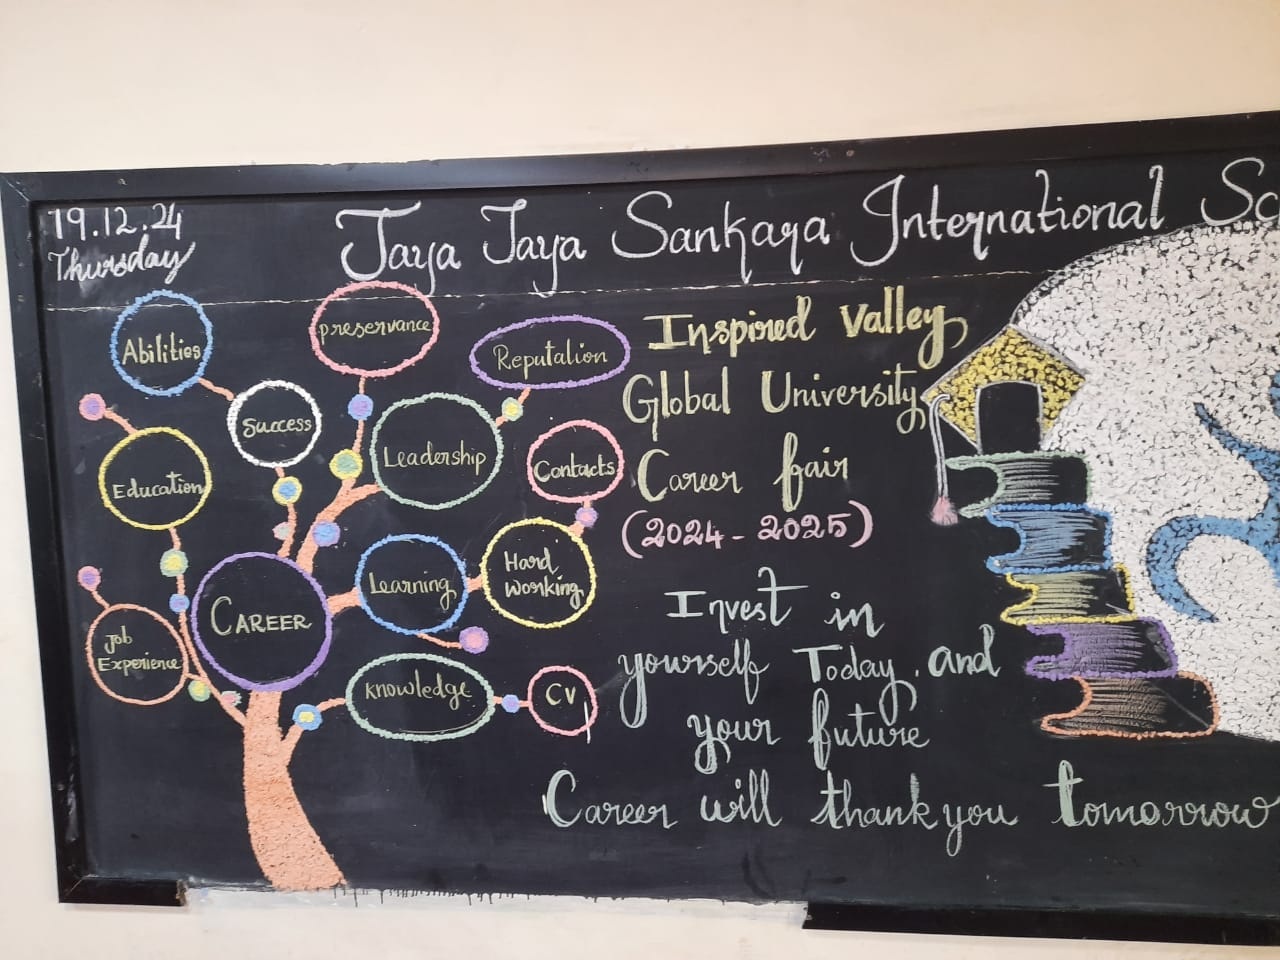 19.12.24
Thursday
Jaya Jaya Sankara International Sc
Abilities
preservance
Reputation
Success
Leadership
Contacts
Education
Hard
Working
Learning
CAREER
Job
Experience
Knowledge
CV
Inspired Valley
Global University
Career fair
(2024 - 2025)
Invest in
yourself Today, and
your future
Career will thank you tomorrow